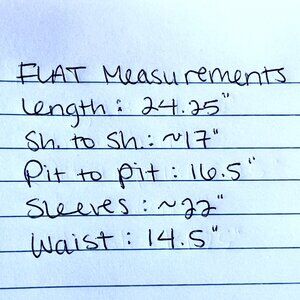 FLAT Measurements
Length : 24.25"
Sh. to Sh.: ~17"
Pit to pit : 16.5"
Sleeves : ~22"
Waist : 14.5"